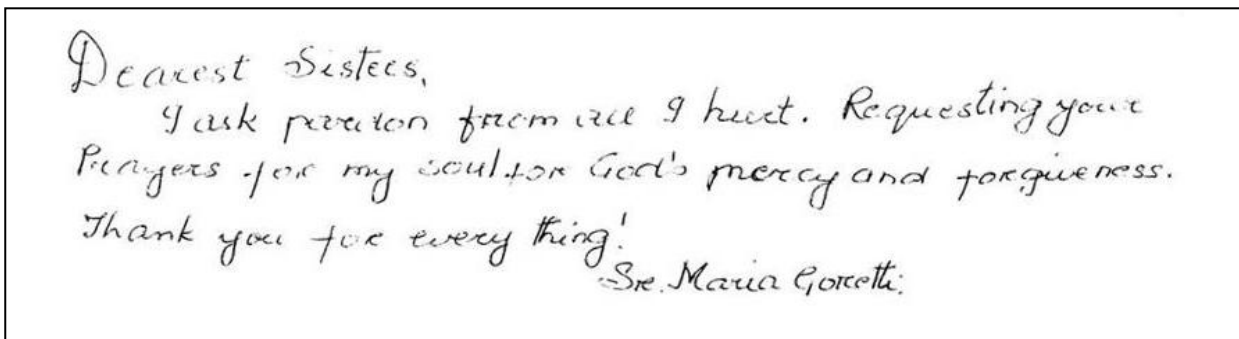 Dearest Sisters,
I ask pardon from all I hurt. Requesting your
Prayers for my soul for God's mercy and forgiveness.
Thank you for every thing!
Sr. Maria Goretti.